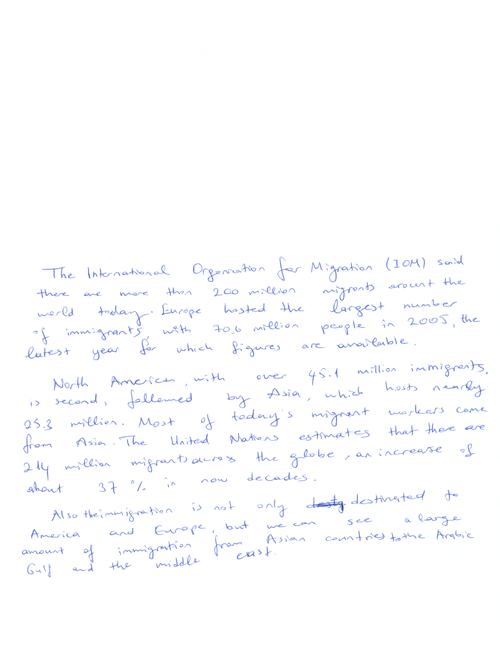 The International Organisation for Migration (IOM) said
there are more than 200 million migrants around the
world today. Europe hosted the largest number
of immigrants with 70,6 million people in 2005, the
latest year for which figures are available.
North American, with over 45.1 million immigrants,
is second, followed by Asia, which hosts nearly
25.3 million. Most of today's migrant workers come
from Asia. The United Nations estimates that there are
214 million migrants across the globe, an increase of
about 37 % in now decades.
Also the immigration is not only destinated to
America and Europe, but we can see a large
amount of immigration from Asian countries to the Arabic
Gulf and the middle east.